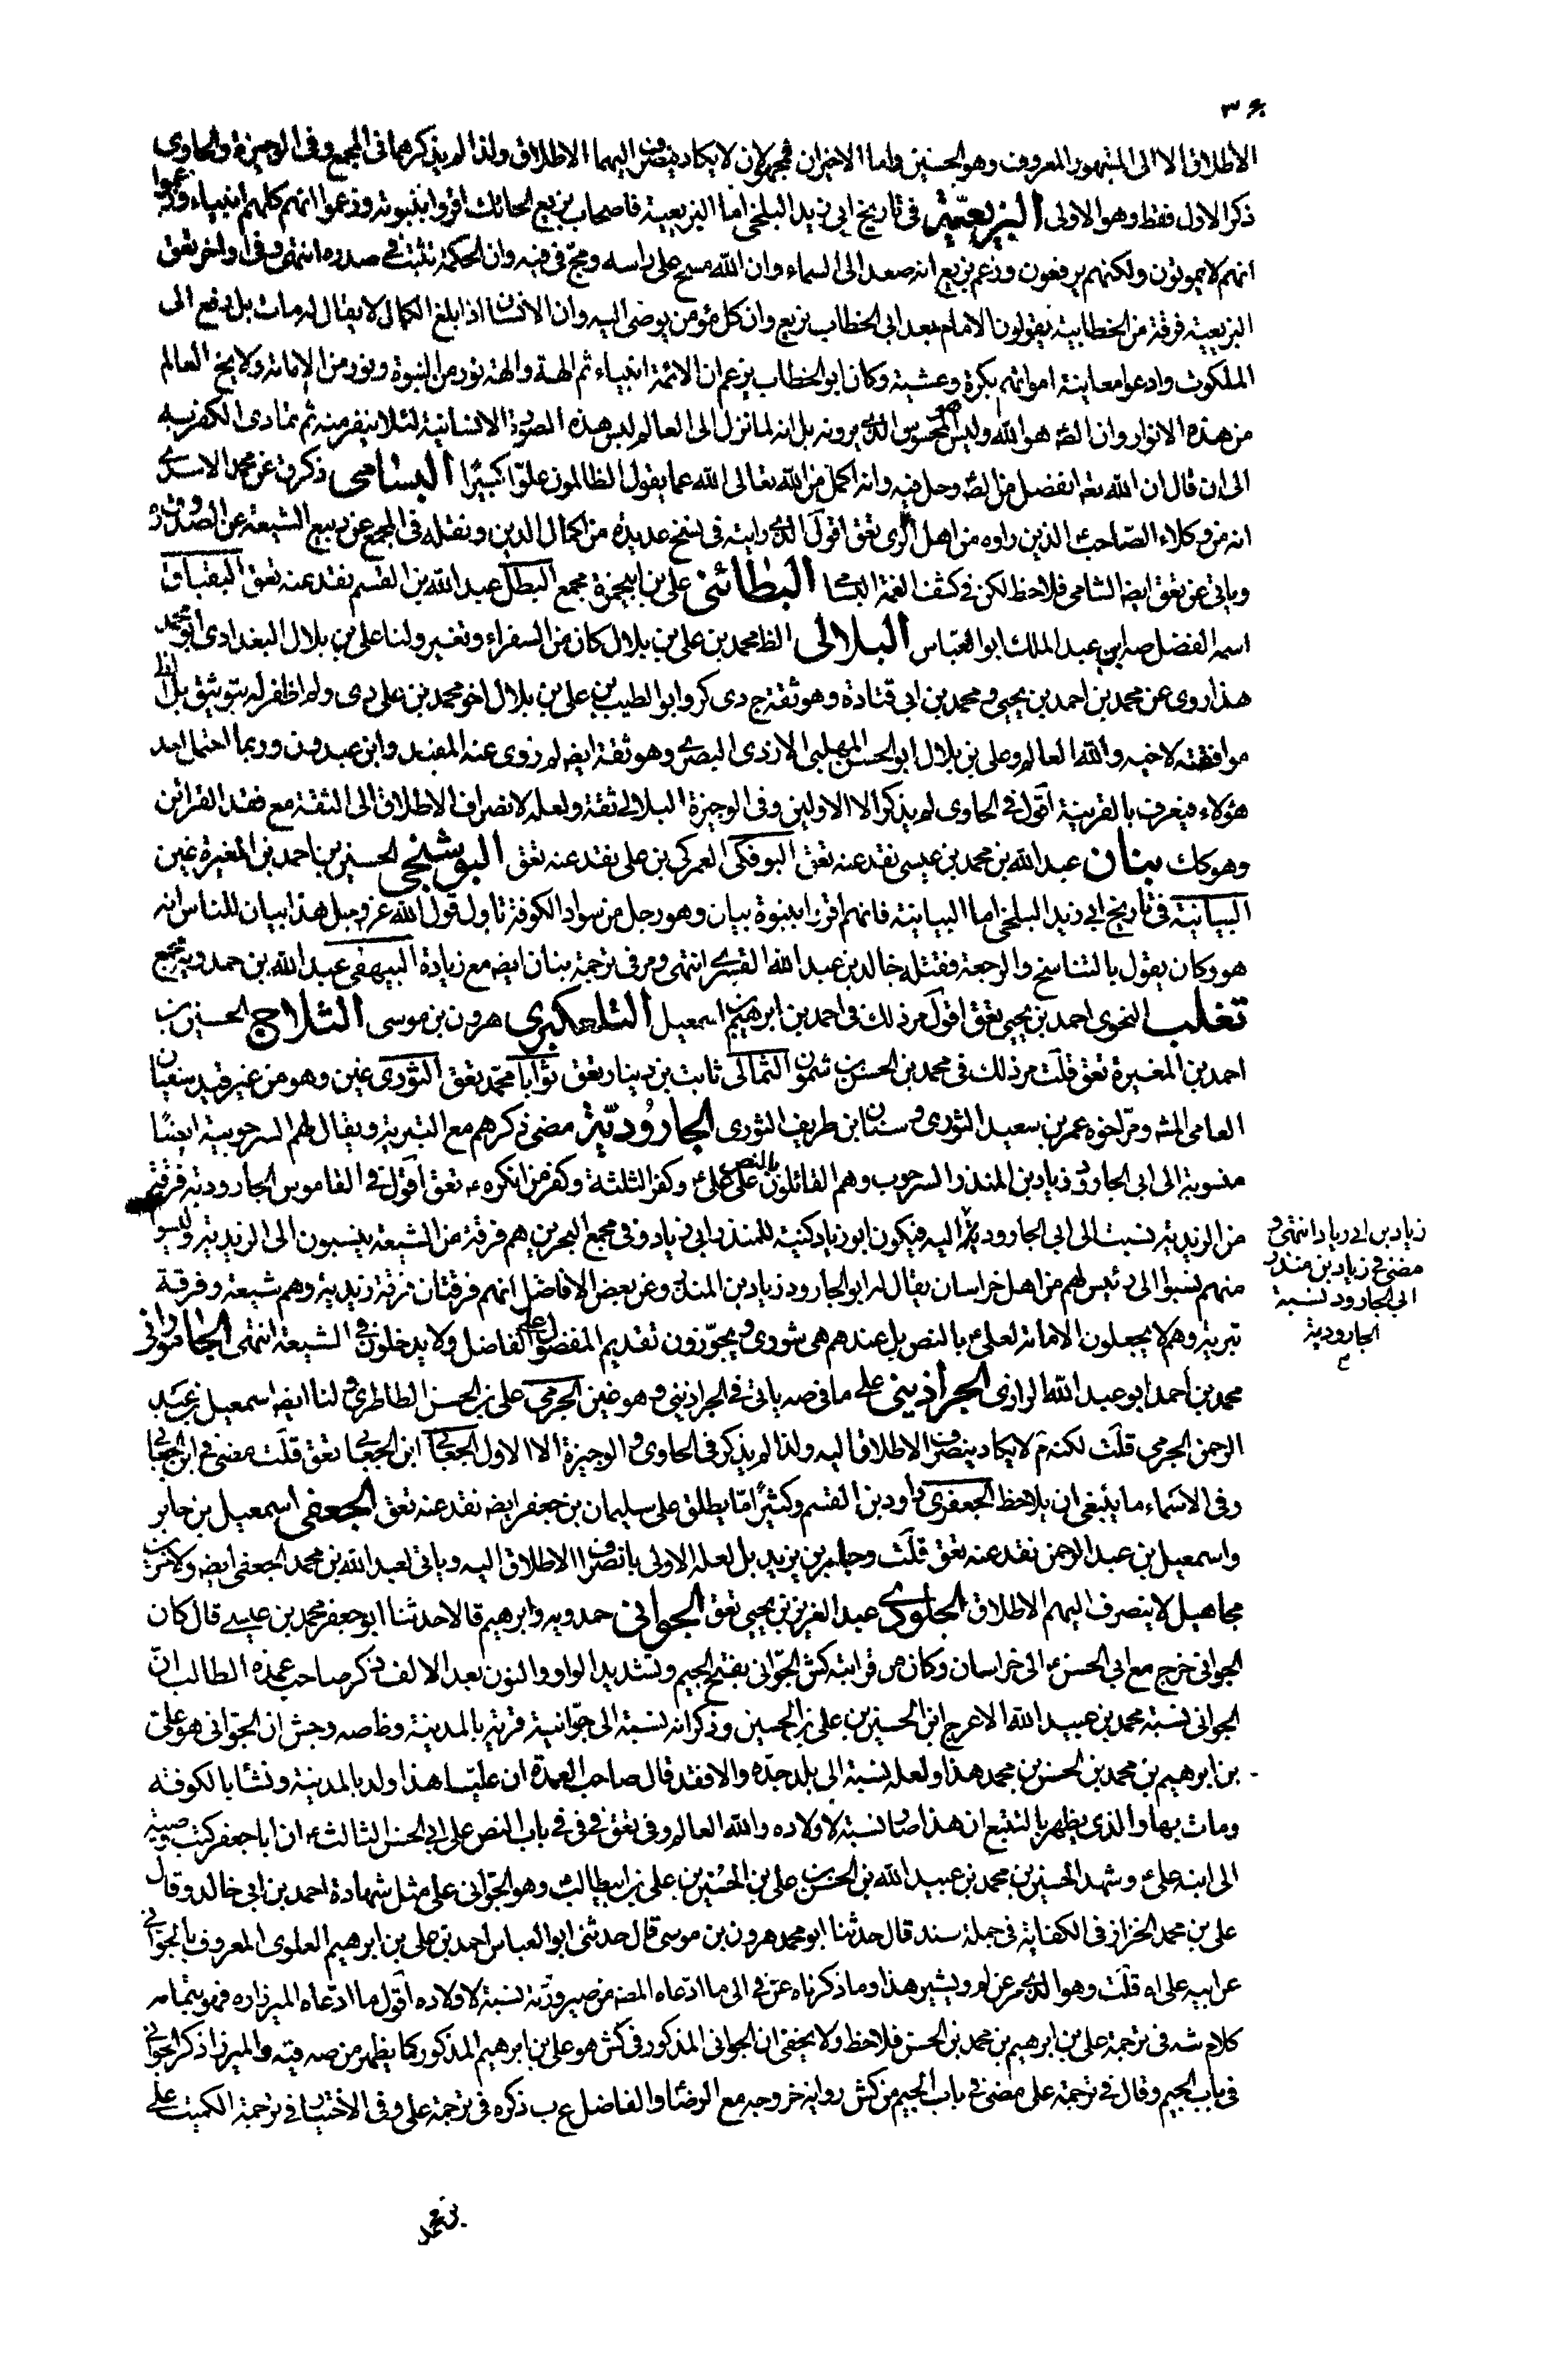 ٣٤
الاطلاق الا الى المشهور المعروف وهو الحسنين واما الاخيران فمجهولان لا يكاد ينصرف اليهما الاطلاق ولذا لم يذكرهما فى المجمع وفى الوجيزة والحاوى
ذكر الاول فقط وهو الاولى البزيعيّة فى تاريخ ابى زيد البلخى اما البزيعية فاصحاب بزيع الحائك اقروا بنبوته وزعموا انهم كلهم انبياء وزعموا
انهم لا يموتون ولكنهم يرفعون وزعم بزيع انه صعد الى السماء وان الله مسح على راسه ومجّ فى فيه وان الحكمة تثبت فى صدره انتهى وفى اواخر تعق
البزيعية فرقة من الخطابية يقولون الامام بعد ابى الخطاب بزيع وان كل مؤمن يوحى اليه وان الانسان اذا بلغ الكمال لا يقال له مات بل رفع الى
الملكوت وادعوا معاينة امواتهم بكرة وعشية وكان ابو الخطاب يزعم ان الائمة انبياء ثم الهة والهة نور من النبوة ونور من الامامة ولا يخ العالم
من هذه الانوار وان الص هو الله وليس المحسوس الذى يرونه بل انه لما نزل الى العالم لبس هذه الصورة الانسانية لئلا ينفر منه ثم تمادى الكفر به
الى ان قال ان الله تعم انفصل من الص وحل فيه وانه اكمل من الله تعالى الله عما يقول الظالمون علوّا كبيرًا البسّامى ذكروه عن محمد الاسدى
انه من وكلاء الصاحب الذين راوه من اهل الرى تعق اقول الذى رايته فى نسخ عديدة من اكمال الدين ونقله فى المجمع عن ربيع الشيعة عن الصدوق
وياتى عن تعق ايض الشامى فلاحظ لكن فى كشف الغمة البسامى البطائنى على بن ابيحمزة مجمع البطل عبد الله بن القسم نقد عنه تعق البقباق
اسمه الفضل صه ابن عبد الملك ابو العباس البلالى الظ محمد بن على بن بلال كان من السفراء وتغير ولنا على بن بلال البغدادى ابو محمد
هذا روى عن محمد بن احمد بن يحيى ومحمد بن ابى قتادة وهو ثقة ج دى كر وابو الطيب بن على بن بلال اخو محمد بن على دى ولم اظفر له بتوثيق بل الظ
موافقته لاخيه والله العالم وعلى بن بلال ابو الحسن المهلبى الازدى البصرى وهو ثقة ايض لم روى عنه المفيد وابن عبدون وربما احتمل احد
هؤلاء فيعرف بالقرينة اقول فى الحاوى لم يذكر الا الاولين وفى الوجيزة البلالى ثقة ولعله لانصراف الاطلاق الى الثقة مع فقد القرائن
وهو كك بنان عبد الله بن محمد بن عيسى نقد عنه تعق البوفكى العمركى بن على نقد عنه تعق البوشنجى الحسين بن احمد بن المغيرة غين
البيانية فى تاريخ ابى زيد البلخى اما البيانية فانهم اقروا بنبوة بيان وهو رجل من سواد الكوفة تاول قول الله عز وجل هذا بيان للناس انه
هو وكان يقول بالتناسخ والرجعة فقتله خالد بن عبد الله القسرى انتهى ومر فى ترجمة بنان ايض مع زيادة البيهقى عبد الله بن حمدويه مجمع
تغلب النحوى احمد بن يحيى تعق اقول مر ذلك فى احمد بن ابرهيم بن اسمعيل التلعكبرى هرون بن موسى الثلاج الحسين بن
احمد بن المغيرة تعق قلت مر ذلك فى محمد بن الحسن بن شمون الثمالى ثابت بن دينار تعق ثوابا محمد تعق الثورى غين وهو من غير قيد سفيان
العامى المشه ومرّ اخوه عمر بن سعيد الثورى وسنان بن طريف الثورى الجاروديّة مضى ذكرهم مع التبرية ويقال لهم السرحوبية ايضًا
منسوبة الى ابى الجارود زياد بن المنذر السرحوب وهم القائلون بالنص على علىّ وكفر الثلثة وكفر من انكره تعق اقول فى القاموس الجارودية فرقة
من الزيدية نسبت الى ابى الجارود زياد اليه فيكون ابو زياد كنية للمنذر ابى زياد وفى مجمع البحرين هم فرقة من الشيعة ينسبون الى الزيدية وليسوا
منهم نسبوا الى رئيس لهم من اهل خراسان يقال له ابو الجارود زياد بن المنذر وعن بعض الافاضل انهم فرقتان فرقة زيدية وهم شيعة وفرقة
تبرية وهم لا يجعلون الامامة لعلىّ بالنص بل عندهم هى شورى ويجوّزون تقديم المفضول على الفاضل ولا يدخلون فى الشيعة انتهى الجامورانى
محمد بن احمد ابو عبد الله الرازى الجراذينى على ما فى صه ياتى فى الجراذينى وهو غين الجرمى على بن الحسن الطاطرى ولنا ايض اسمعيل بن عبد
الرحمن الجرمى قلت لكنه م لا يكاد ينصرف الاطلاق اليه ولذا لم يذكر فى الحاوى والوجيزة الا الاول الجعابى ابن الجعابى تعق قلت مضى فى ابن الجعابى
وفى الاسماء ما ينبغى ان يلاحظ الجعفرى داود بن القسم وكثيرًا مّا يطلق على سليمان بن جعفر ايض نقد عنه تعق الجعفى اسمعيل بن جابر
واسمعيل بن عبد الرحمن نقد عنه تعق قلت وجابر بن يزيد بل لعله الاولى بانصراف الاطلاق اليه وياتى لعبد الله بن محمد الجعفى ايض ولاخرين
مجاهيل لا ينصرف اليهم الاطلاق الجلودى عبد العزيز بن يحيى تعق الجوانى حمدويه وابرهيم قالا حدثنا ابو جعفر محمد بن عيسى قال كان
الجوانى خرج مع ابى الحسنء الى خراسان وكان من قرابته كش الجوّانى بفتح الجيم وتشديد الواو والنون بعد الالف ذكر صاحب عمدة الطالب انّ
الجوانى نسبة محمد بن عبيد الله الاعرج ابن الحسين بن على بن الحسين وذكر انه نسبة الى جوّانية قرية بالمدينة وظ صه وجش ان الجوّانى هو على
بن ابرهيم بن محمد بن الحسن بن محمد هذا ولعله نسبة الى بلد جدّه والا فقد قال صاحب العمدة ان عليّا هذا ولد بالمدينة ونشا بالكوفة
ومات بها والذى يظهر بالتتبع ان هذا صار نسبة لاولاده والله العالم وفى تعق فى فى فى باب النص على ابى الحسن الثالثء ان ابا جعفر كتب وصية
الى ابنه علىّ وشهد الحسين بن محمد بن عبيد الله بن الحسن بن على بن الحسين بن على بن ابيطالب وهو الجوّانى على مثل شهادة احمد بن ابى خالد وقال
على بن محمد الخزاز فى الكفاية فى جملة سند قال حدثنا ابو محمد هرون بن موسى قال حدثنى ابو العباس احمد بن على بن ابرهيم العلوى المعروف بالجوّانى
عن ابيه على اه قلت وهو الذى مر عن لم ويشير هذا وما ذكرناه عن فى الى ما ادّعاه المص من صيرورته نسبة لاولاده اقول ما ادّعاه الميرزا ره فهو بتمامه
كلام شه فى ترجمة على بن ابرهيم بن محمد بن الحسن فلاحظ ولا يخفى ان الجوانى المذكور فى كش هو على بن ابرهيم المذكور كما يظهر من صه فيه والميرزا ذكر الجوانى
فى باب الجيم وقال فى ترجمة على مضى فى باب الجيم من كش رواية خروجه مع الرضا والفاضل ع ب ذكره فى ترجمة على وفى الاختيار فى ترجمة الكميت على
زياد بن ابى زياد انتهى و
مضى فى زياد بن منذر
الى الجارود نسبة
الجارودية
بن محمد